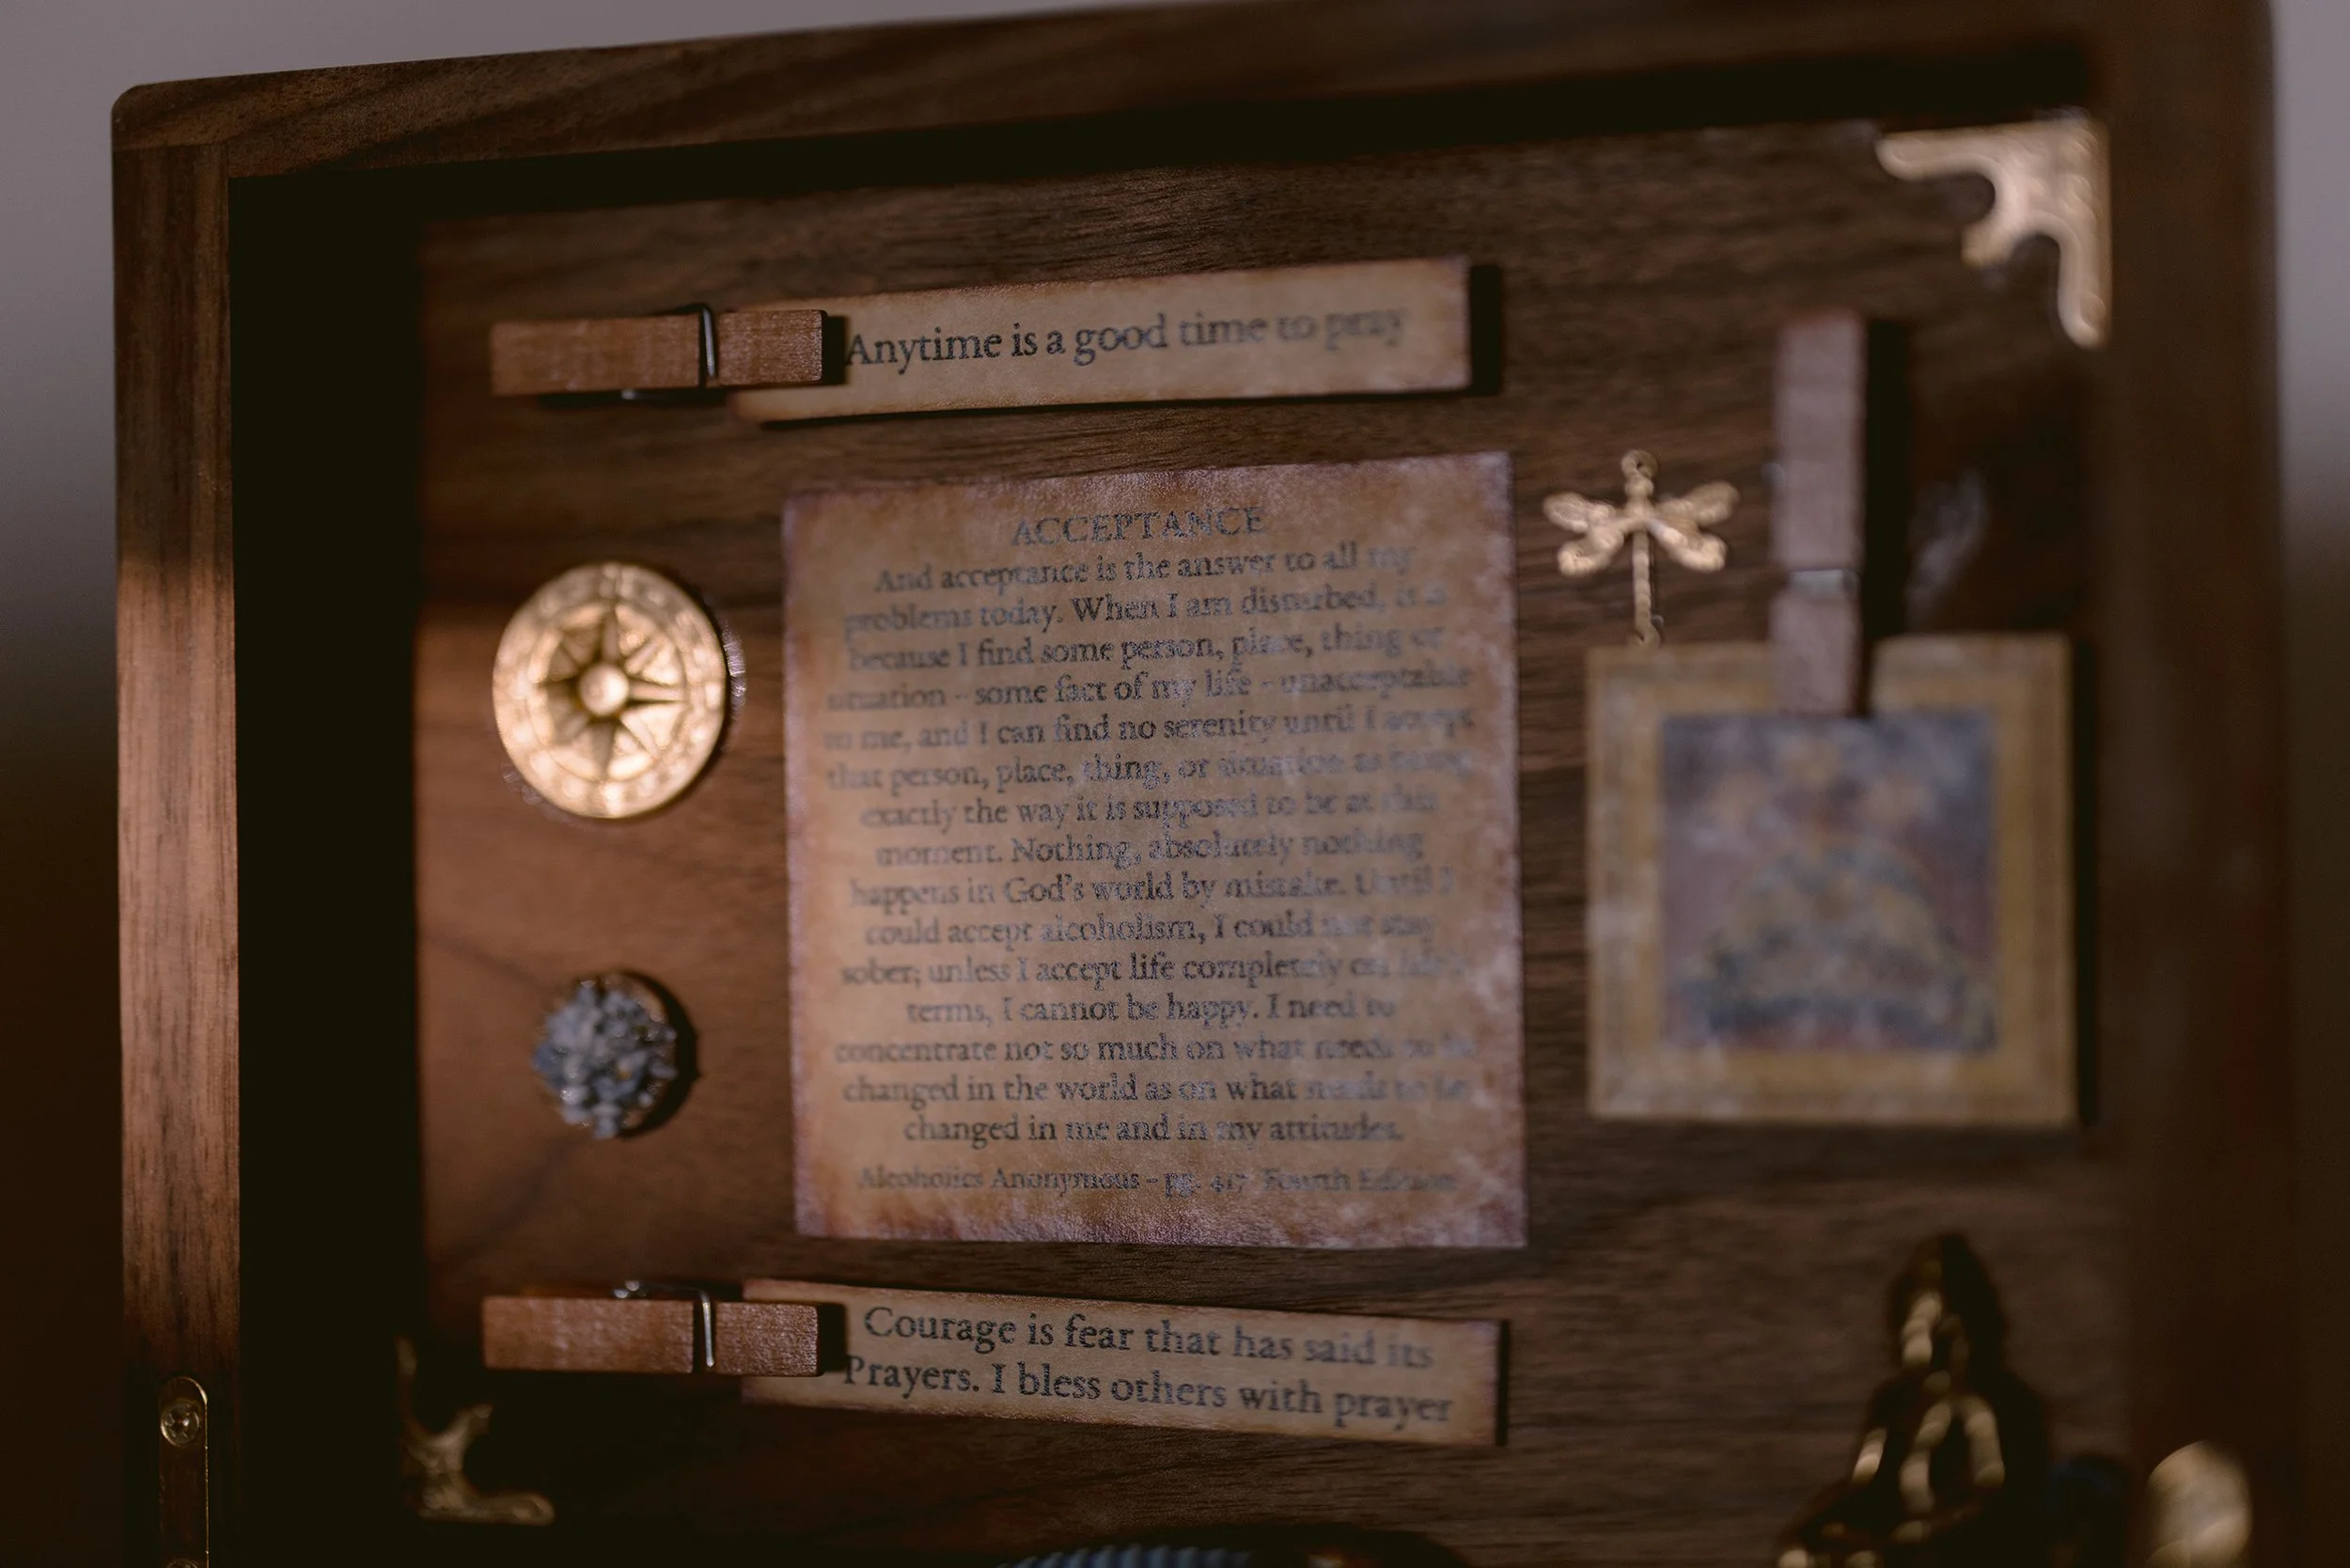 Anytime is a good time to pray
ACCEPTANCE
And acceptance is the answer to all my
problems today. When I am disturbed, it is
because I find some person, place, thing or
situation - some fact of my life - unacceptable
to me, and I can find no serenity until I accept
that person, place, thing, or situation as being
exactly the way it is supposed to be at this
moment. Nothing, absolutely nothing
happens in God's world by mistake. Until I
could accept alcoholism, I could not stay
sober; unless I accept life completely on life's
terms, I cannot be happy. I need to
concentrate not so much on what needs to be
changed in the world as on what needs to be
changed in me and in my attitudes.
Alcoholics Anonymous - pg. 417 Fourth Edition
Courage is fear that has said its
Prayers. I bless others with prayer